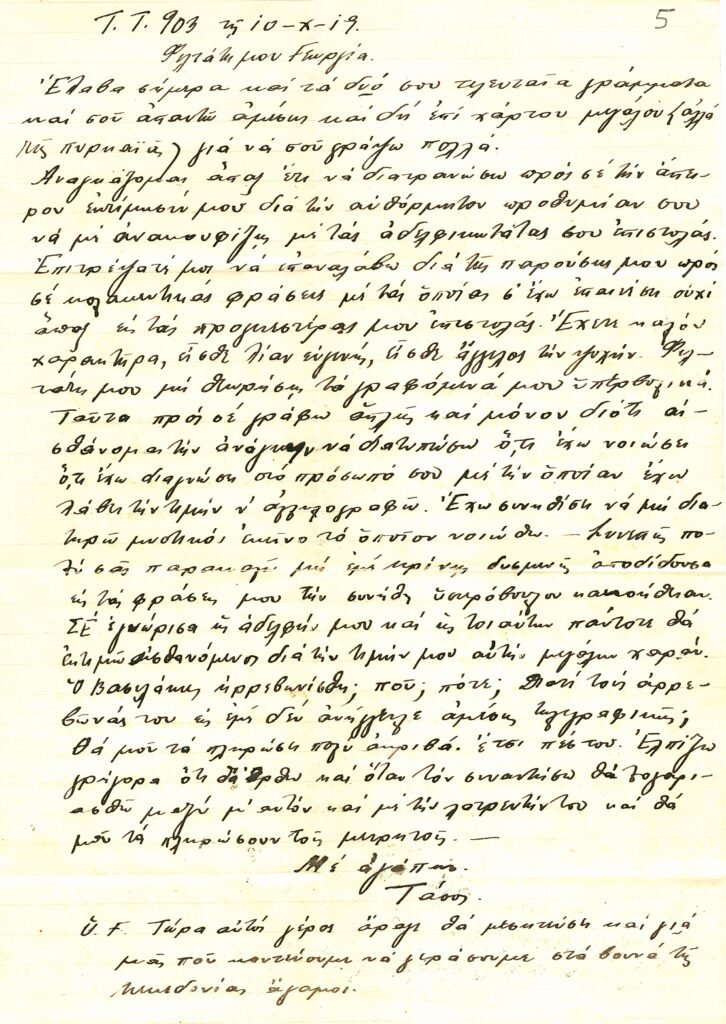 5
Τ.Τ. 903 τῇ 10-Χ-19.
Φιλτάτη μου Γεωργία.
Ἔλαβα σήμερα καὶ τὰ δυό σου τελευταῖα γράμματα
καὶ σοῦ ἀπαντῶ ἀμέσως καὶ δὴ ἐπὶ χάρτου μεγάλου (ἀλλὰ
τῆς πυρκαϊᾶς) γιὰ νὰ σοῦ γράψω πολλά.
Ἀναγκάζομαι ἅπαξ ἔτι νὰ διατρανώσω πρὸς σὲ τὴν ἄπει-
ρον ἐκτίμησίν μου διὰ τὴν αὐθόρμητον προθυμίαν σου
νὰ μὲ ἀνακουφίζῃς μὲ τὰς ἀδελφικωτάτας σου ἐπιστολάς.
Ἐπιτρέψατέ μοι νὰ ἐπαναλάβω διὰ τῆς παρούσης μου πρὸς
σὲ κολακευτικὰς φράσεις μὲ τὰς ὁποίας σ' ἔχω ἐπαινέσει οὐχὶ
ἅπαξ εἰς τὰς προγενεστέρας μου ἐπιστολάς. Ἔχετε καλὸν
χαρακτῆρα, εἶσθε λίαν εὐγενής, εἶσθε ἄγγελος τὴν ψυχήν. Φιλ-
τάτη μου μὴ θεωρήσῃς τὰ γραφόμενά μου ὑπερβολικά.
Ταῦτα πρὸς σὲ γράφω ἁπλῶς καὶ μόνον διότι αἰ-
σθάνομαι τὴν ἀνάγκην νὰ διατυπώσω ὅ,τι ἔχω νοιώσει
ὅ,τι ἔχω διαγνώσει στὸ πρόσωπό σου μὲ τὴν ὁποίαν ἔχω
λάβει τὴν τιμὴν ν' ἀλληλογραφῶ. Ἔχω συνηθίσει νὰ μὴ δια-
τηρῶ μυστικὸ ἐκεῖνο τὸ ὁποῖον νοιώθω. — Συνεπῶς πο-
λὺ σᾶς παρακαλῶ μὴ μὲ κρίνῃς δυσμενῶς ἀποδίδουσα
εἰς τὰς φράσεις μου τὴν συνήθη κακοήθειαν.
ΣΕ ἐγνώρισα ὡς ἀδελφήν μου καὶ ὡς τοιαύτην πάντοτε θὰ
ἐκτιμῶ αἰσθανόμενος διὰ τὴν τιμήν μου αὐτὴν μεγάλην χαράν.
Ὁ Βασιλάκης ἠρρεβωνίσθη; ποῦ; πότε; Διατί τοὺς ἀρρε-
βῶνάς του εἰς ἐμὲ δὲν ἀνήγγειλε ἀμέσως τηλεγραφικῶς;
Θὰ μοῦ τὰ πληρώσῃ πολὺ ἀκριβά. ἔτσι πές του. Ἐλπίζω
γρήγορα ὅτι θὰ ἔρθω καὶ ὅταν τὸν συναντήσω θὰ λογαρι-
ασθῶ μαζὺ μ' αὐτὸν καὶ μὲ τὴν λατρευτήν του καὶ θὰ
μοῦ τὰ πληρώσουν τοῖς μετρητοῖς. —
Μὲ ἀγάπην
Τάσος
Υ.Γ. Τώρα αὐτὸς ὁ γέρος ἄραγε θὰ μεσητεύσῃ καὶ γιὰ
μᾶς ποὺ κοντεύουμε νὰ γεράσουμε στὰ βουνὰ τῆς
Μακεδονίας ἄγαμοι.